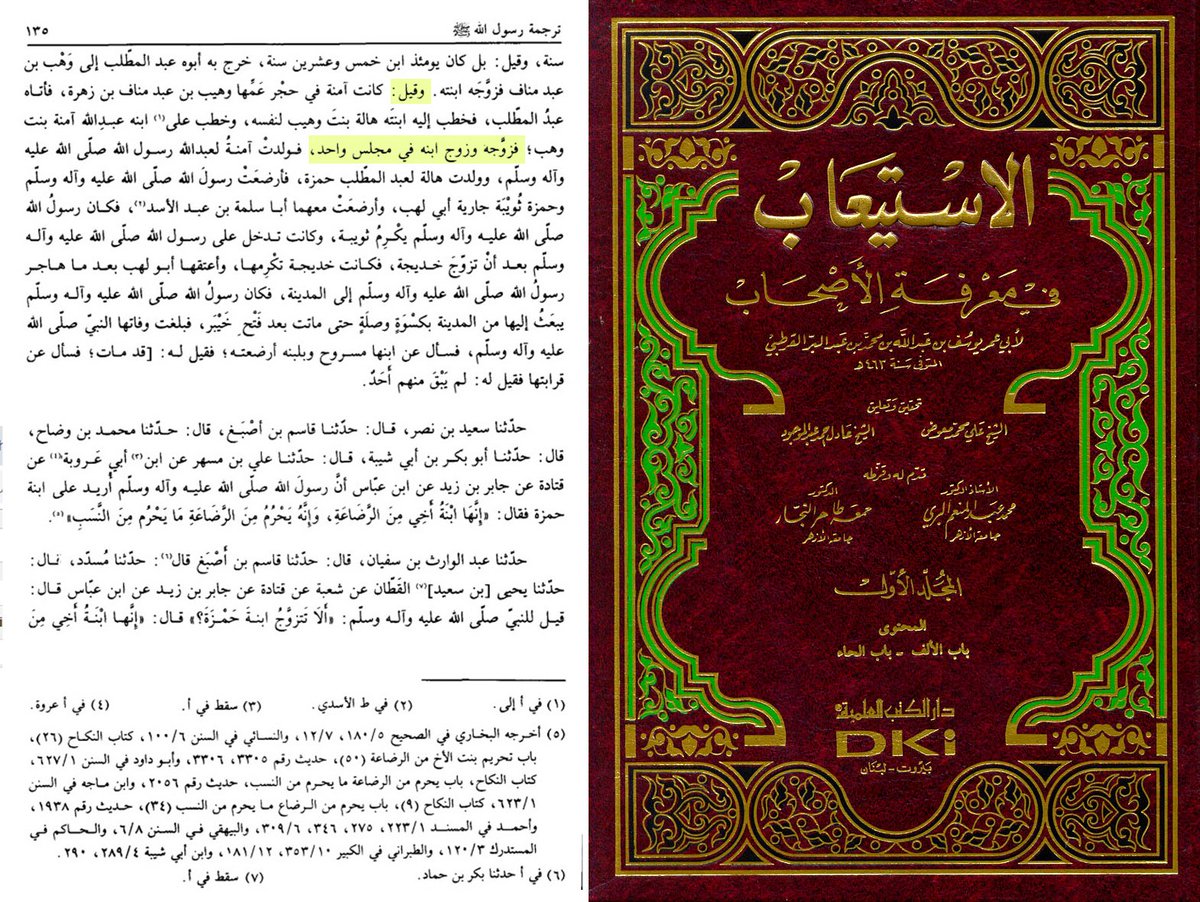 ترجمة رسول الله ﷺ ١٣٥
سنة، وقيل: بل كان يومئذ ابن خمس وعشرين سنة، خرج به أبوه عبد المطّلب إلى وَهْب بن
عبد مناف فزوَّجه ابنته. وقيل: كانت آمنة في حجْر عَمِّها وهيب بن عبد مناف بن زهرة، فأتاه
عبدُ المطّلب، فخطب إليه ابنتَه هالة بنتَ وهيب لنفسه، وخطب على(١) ابنه عبدالله آمنة بنت
وهب؛ فزوَّجه وزوج ابنه في مجلس واحد، فولدتْ آمنةُ لعبدالله رسول الله صلّى الله عليه
وآله وسلّم، وولدت هالة لعبد المطّلب حمزة، فأرضعَتْ رسولَ الله صلّى الله عليه وآله وسلّم
وحمزة ثُوَيْبَة جارية أبي لهب، وأرضعَتْ معهما أبا سلمة بن عبد الأسد(٢)، فكان رسولُ الله
صلّى الله عليه وآله وسلّم يكْرِمُ ثويبة، وكانت تدخل على رسول الله صلّى الله عليه وآله
وسلّم بعد أنْ تزوّجَ خديجة، فكانت خديجة تكْرِمها، وأعتقها أبو لهب بعد ما هاجر
رسولُ الله صلّى الله عليه وآله وسلّم إلى المدينة، فكان رسولُ الله صلّى الله عليه وآله وسلّم
يبعَثُ إليها من المدينة بكسْوَةٍ وصلَةٍ حتى ماتت بعد فَتْحِ خَيْبَر، فبلغت وفاتها النبيّ صلّى الله
عليه وآله وسلّم، فسأل عن ابنها مسروح وبلبنه أرضعته؛ فقيل له: [قد مات؛ فسأل عن
قرابتها فقيل له: لم يَبْقَ منهم أَحَدٌ.
حدّثنا سعيد بن نصر، قال: حدّثنا قاسم بن أصْبَغ، قال: حدّثنا محمد بن وضاح،
قال: حدّثنا أبو بكر بن أبي شيبة، قال: حدّثنا علي بن مسهر عن ابن(٣) أبي عَروبة(٤) عن
قتادة عن جابر بن زيد عن ابن عبّاس أنَّ رسولَ الله صلّى الله عليه وآله وسلّم أُريد على ابنة
حمزة فقال: «إنَّهَا ابْنَةُ أَخِي مِنَ الرَّضَاعَةِ، وَإِنَّهُ يَحْرُمُ مِنَ الرَّضَاعَةِ مَا يَحْرُم مِنَ النَّسَبِ»(٥).
حدّثنا عبد الوارث بن سفيان، قال: حدّثنا قاسم بن أَصْبَغ قال(٦): حدّثنا مُسدّد، قال:
حدّثنا يحيى [بن سعيد](٧) القَطّان عن شعبة عن قتادة عن جابر بن زيد عن ابن عباس قال:
قيل للنبيّ صلّى الله عليه وآله وسلّم: «أَلَا تَتزوَّجُ ابنةَ حَمْزَةَ؟» قال: «إنَّها ابْنَةُ أَخِي مِنَ
(١) في أ إلى. (٢) في ط الأسدي. (٣) سقط في أ. (٤) في أ عروة.
(٥) أخرجه البخاري في الصحيح ١٨٠/٥، ١٢/٧، والنسائي في السنن ١٠٠/٦، كتاب النكاح (٢٦)،
باب تحريم بنت الأخ من الرضاعة (٥٠)، حديث رقم ٣٣٠٥، ٣٣٠٦، وأبو داود في السنن ٦٢٧/١
كتاب النكاح، باب يحرم من الرضاعة ما يحرم من النسب، حديث رقم ٢٠٥٦، وابن ماجه في السنن
٦٢٣/١، كتاب النكاح (٩)، باب يحرم من الرضاع ما يحرم من النسب (٣٤)، حديث رقم ١٩٣٨،
وأحمد في المسند ٢٢٣/١، ٢٧٥، ٣٤٦، ٣٠٩/٦، والبيهقي في السنن ٦/٨، والحاكم في
المستدرك ١٢٠/٣، والطبراني في الكبير ٣٥٣/١٠، ١٨١/١٢، وابن أبي شيبة ٢٨٩/٤، ٢٩٠.
(٦) في أ حدثنا بكر بن حماد. (٧) سقط في أ.
الاستيعاب
في معرفة الأصحاب
لأبي عمر يوسف بن عبد الله بن محمد بن عبد البر القرطبي
المتوفى سنة ٤٦٣هـ
تحقيق وتعليق
الشيخ علي محمد معوض الشيخ عادل أحمد عبد الموجود
قدم له وقرظه
الأستاذ الدكتور الدكتور
محمد عبد المنعم البري جمعة طاهر النجار
جامعة الأزهر جامعة الأزهر
المجلد الأول
المحتوى
باب الألف - باب الحاء
دار الكتب العلمية
DKi
بيروت - لبنان